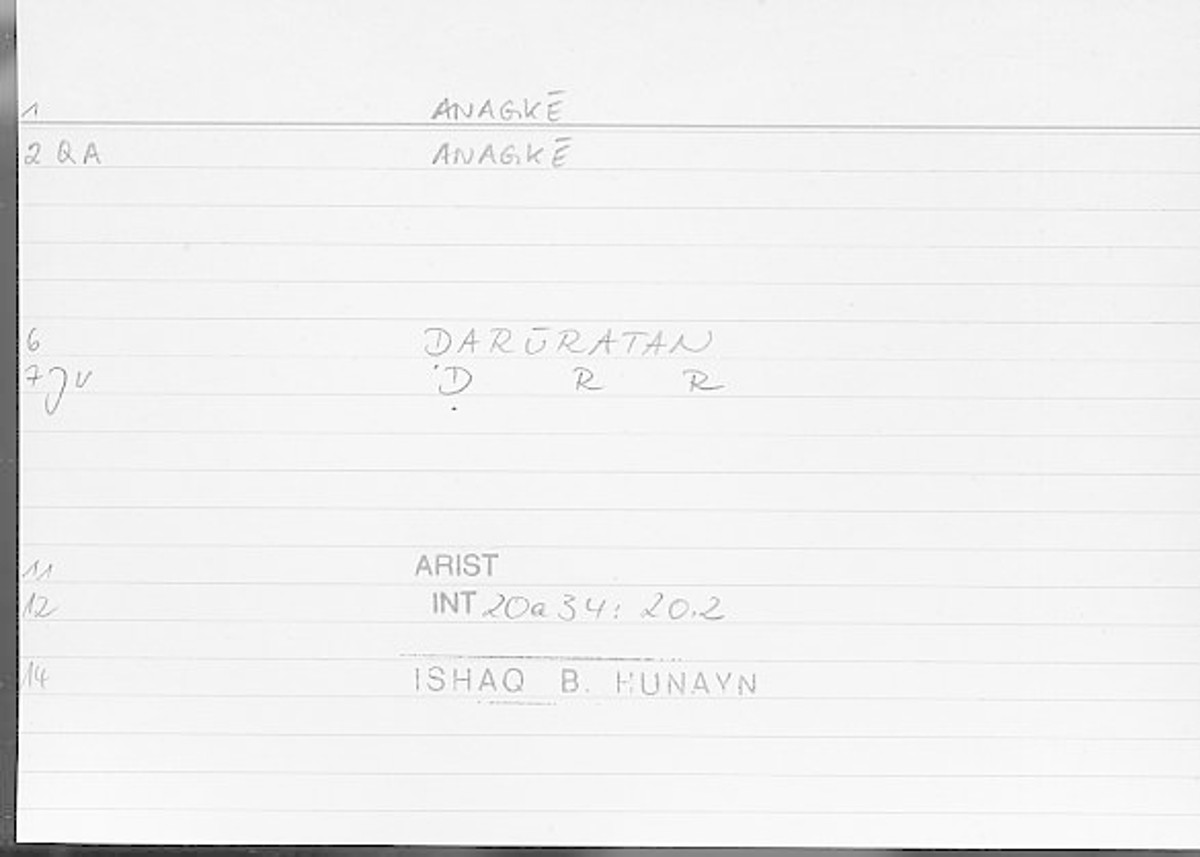 1 ANAGKĒ
2 QA ANAGKĒ
6 DARŪRATAN
7 JV Ḍ R R
11 ARIST
12 INT 20a34: 20.2
14 ISHAQ B. HUNAYN